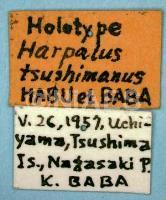 Holotype
Harpalus
tsushimanus
HABU et BABA
V. 26, 1957, Uchi-
yama, Tsushima
Is., Nagasaki P.
K. BABA